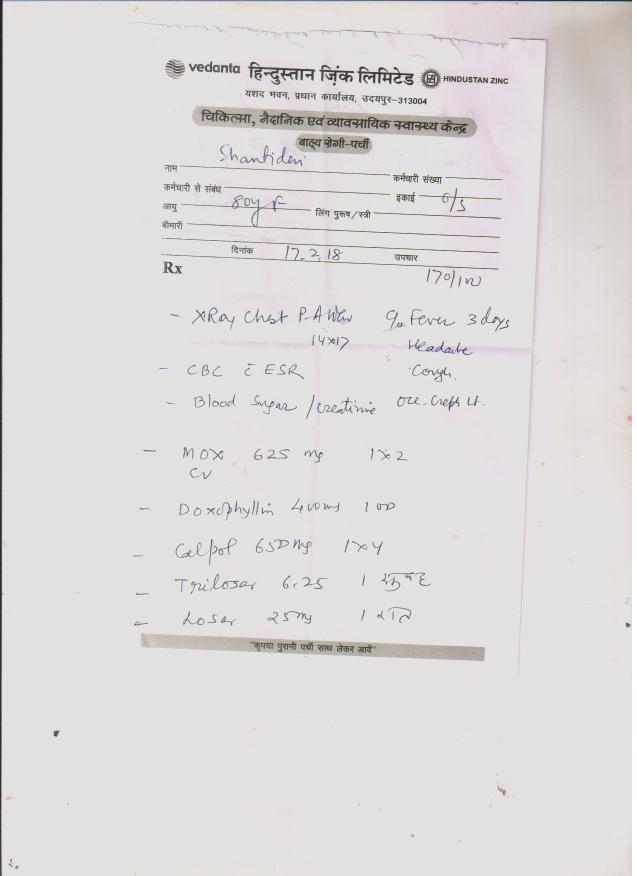 vedanta हिन्दुस्तान ज़िंक लिमिटेड HINDUSTAN ZINC
यशद भवन, प्रधान कार्यालय, उदयपुर–313004
चिकित्सा, नैदानिक एवं व्यावसायिक स्वास्थ्य केन्द्र
बाह्य रोगी-पर्ची
नाम Shantidevi कर्मचारी संख्या
कर्मचारी से संबंध इकाई O/S
आयु 80y F लिंग पुरूष/स्त्री
बीमारी
दिनांक 17.2.18 उपचार
Rx 170/100
- XRay Chest P-A View Fever 3 days
14x17 Headache
- CBC c̄ ESR Cough.
- Blood Sugar / creatinine occ. creps Lt.
- MOX 625 mg 1x2
CV
- Doxophyllin 400mg 1 OD
- Calpol 650mg 1x4
- Trilosar 6.25 1 सुबह
- Losar 25mg 1 रात्रि
"कृपया पुरानी पर्ची साथ लेकर आयें"